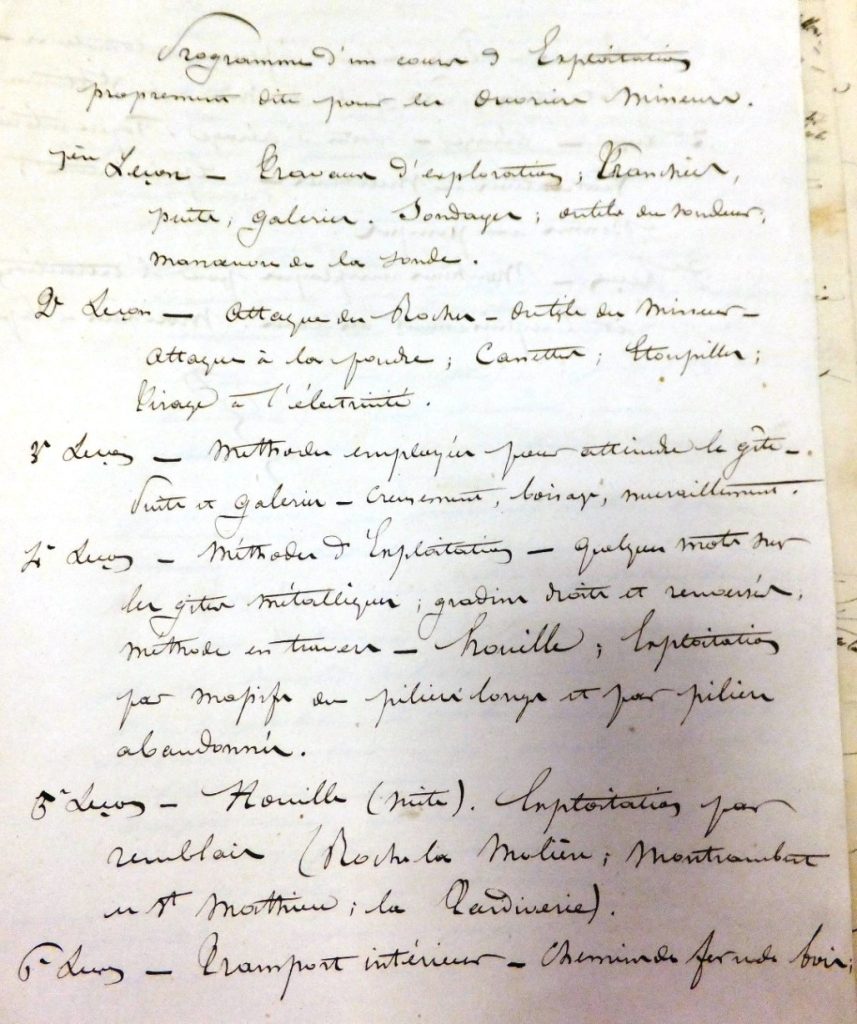 Programme d'un cours d'Exploitation
proprement dite pour les ouvriers Mineurs.
1ère Leçon — Travaux d'exploration; Tranchées,
puits, galeries. Sondages; outils du sondeur;
manœuvre de la sonde.
2e Leçon — Attaque du Rocher — Outils du Mineur —
Attaque à la poudre; Canettes; Etoupilles;
Tirage à l'électricité.
3e Leçon — Méthodes employées pour atteindre le gîte —
Puits et galeries — Creusement, boisage, muraillement.
4e Leçon — Méthodes d'Exploitation — quelques mots sur
les gîtes métalliques; gradins droits et renversés;
méthode en travers — Houille; Exploitation
par massifs ou piliers longs et par piliers
abandonnés.
5e Leçon — Houille (suite). Exploitation par
remblais (Roche la Molière; Montrambert
St Mathieu; la Tardiverie).
6e Leçon — Transport intérieur — Chemins de fer de bois;